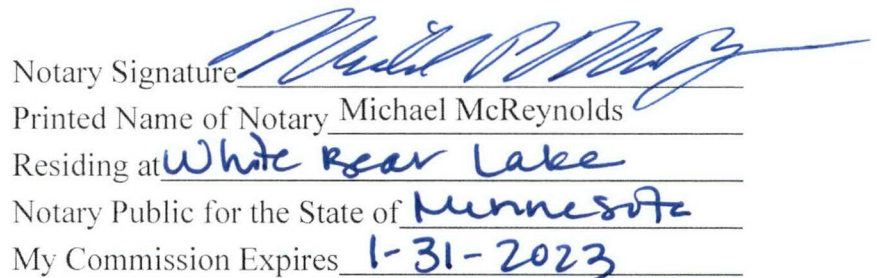 Notary Signature
Printed Name of Notary Michael McReynolds
Residing at White Bear Lake
Notary Public for the State of Minnesota
My Commission Expires 1-31-2023